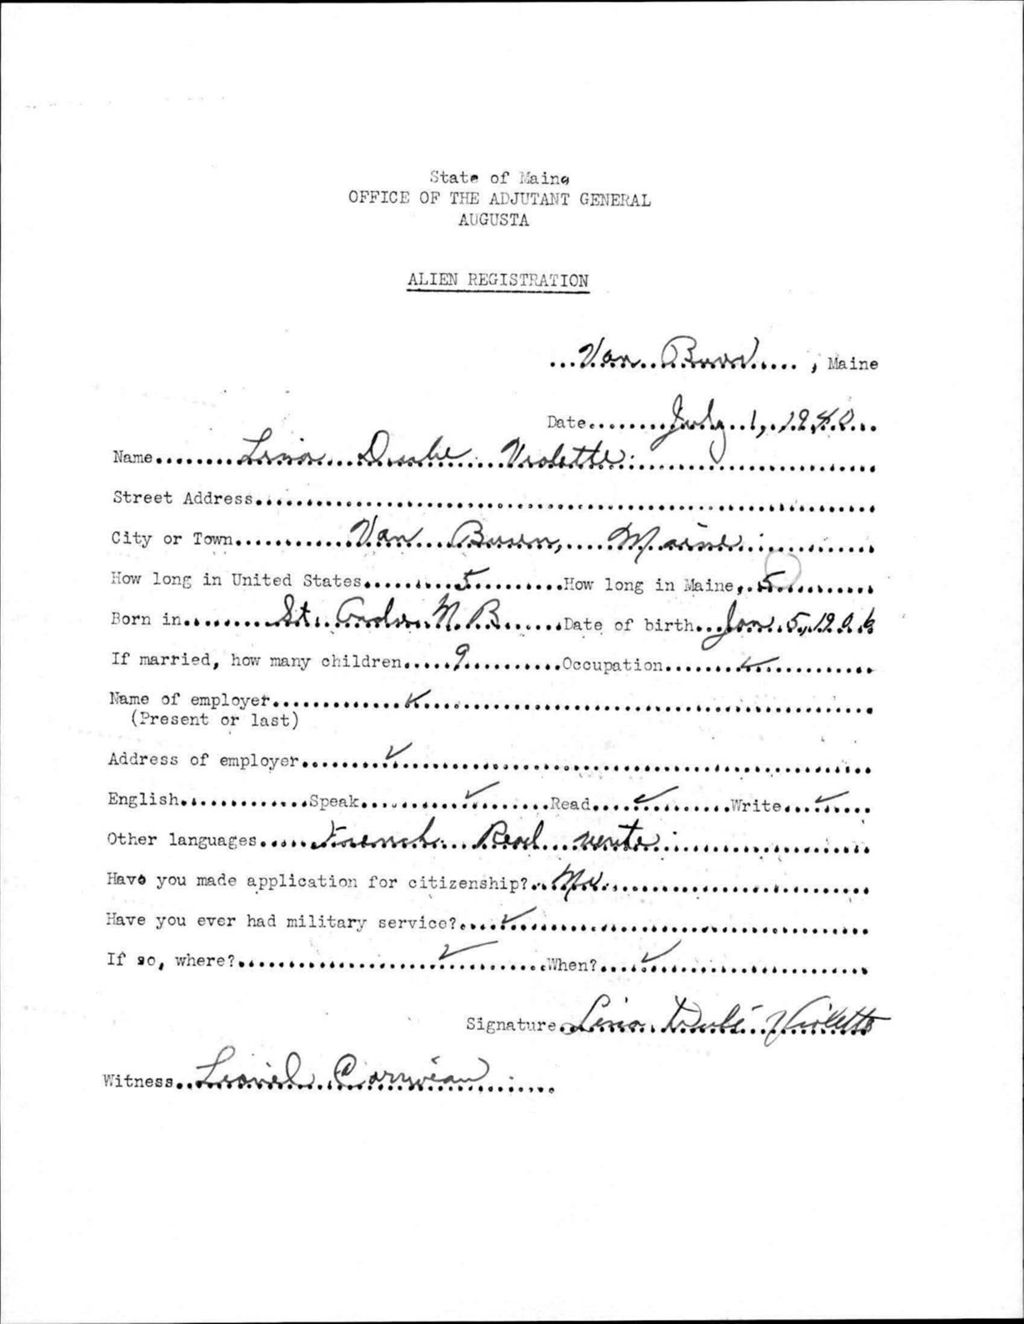 State of Maine
OFFICE OF THE ADJUTANT GENERAL
AUGUSTA
ALIEN REGISTRATION
Van Buren, Maine
Date July 1, 1940
Name Lina Dube Violette
Street Address
City or Town Van Buren, Maine
How long in United States 5 How long in Maine 5
Born in St. N.B. Date of birth Jan. 5, 1906
If married, how many children 9 Occupation ✓
Name of employer ✓
(Present or last)
Address of employer ✓
English Speak ✓ Read ✓ Write ✓
Other languages French Read write
Have you made application for citizenship? No
Have you ever had military service? ✓
If so, where? ✓ When? ✓
Signature Lina Dubé Violette
Witness Lionel